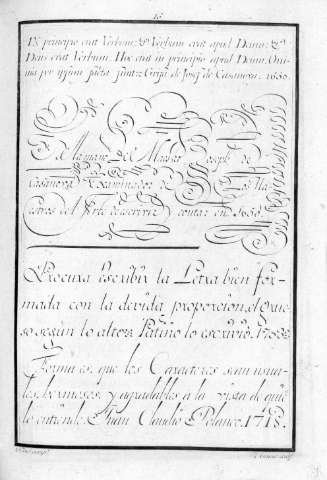 In principio erat Verbum: & Verbum erat apud Deum: &
Deus erat Verbum. Hoc erat in principio apud Deum. Omnia
per ipsum facta sunt: Josef de Casanova. 1650.
De la mano Del Maestro Joseph de
Casanova Examinador de los Ma
estros del Arte de escrivir y contar en 1650.
Procura escribir la Letra bien for-
mada con la devida proporcion, el grue-
so segun lo alto: Patiño lo escrivió.
Forma es, que los Caracteres sean igua-
les, hermosos, y agradables a la vista de quie
lo entiende. Juan Claudio Polanco. 1718.